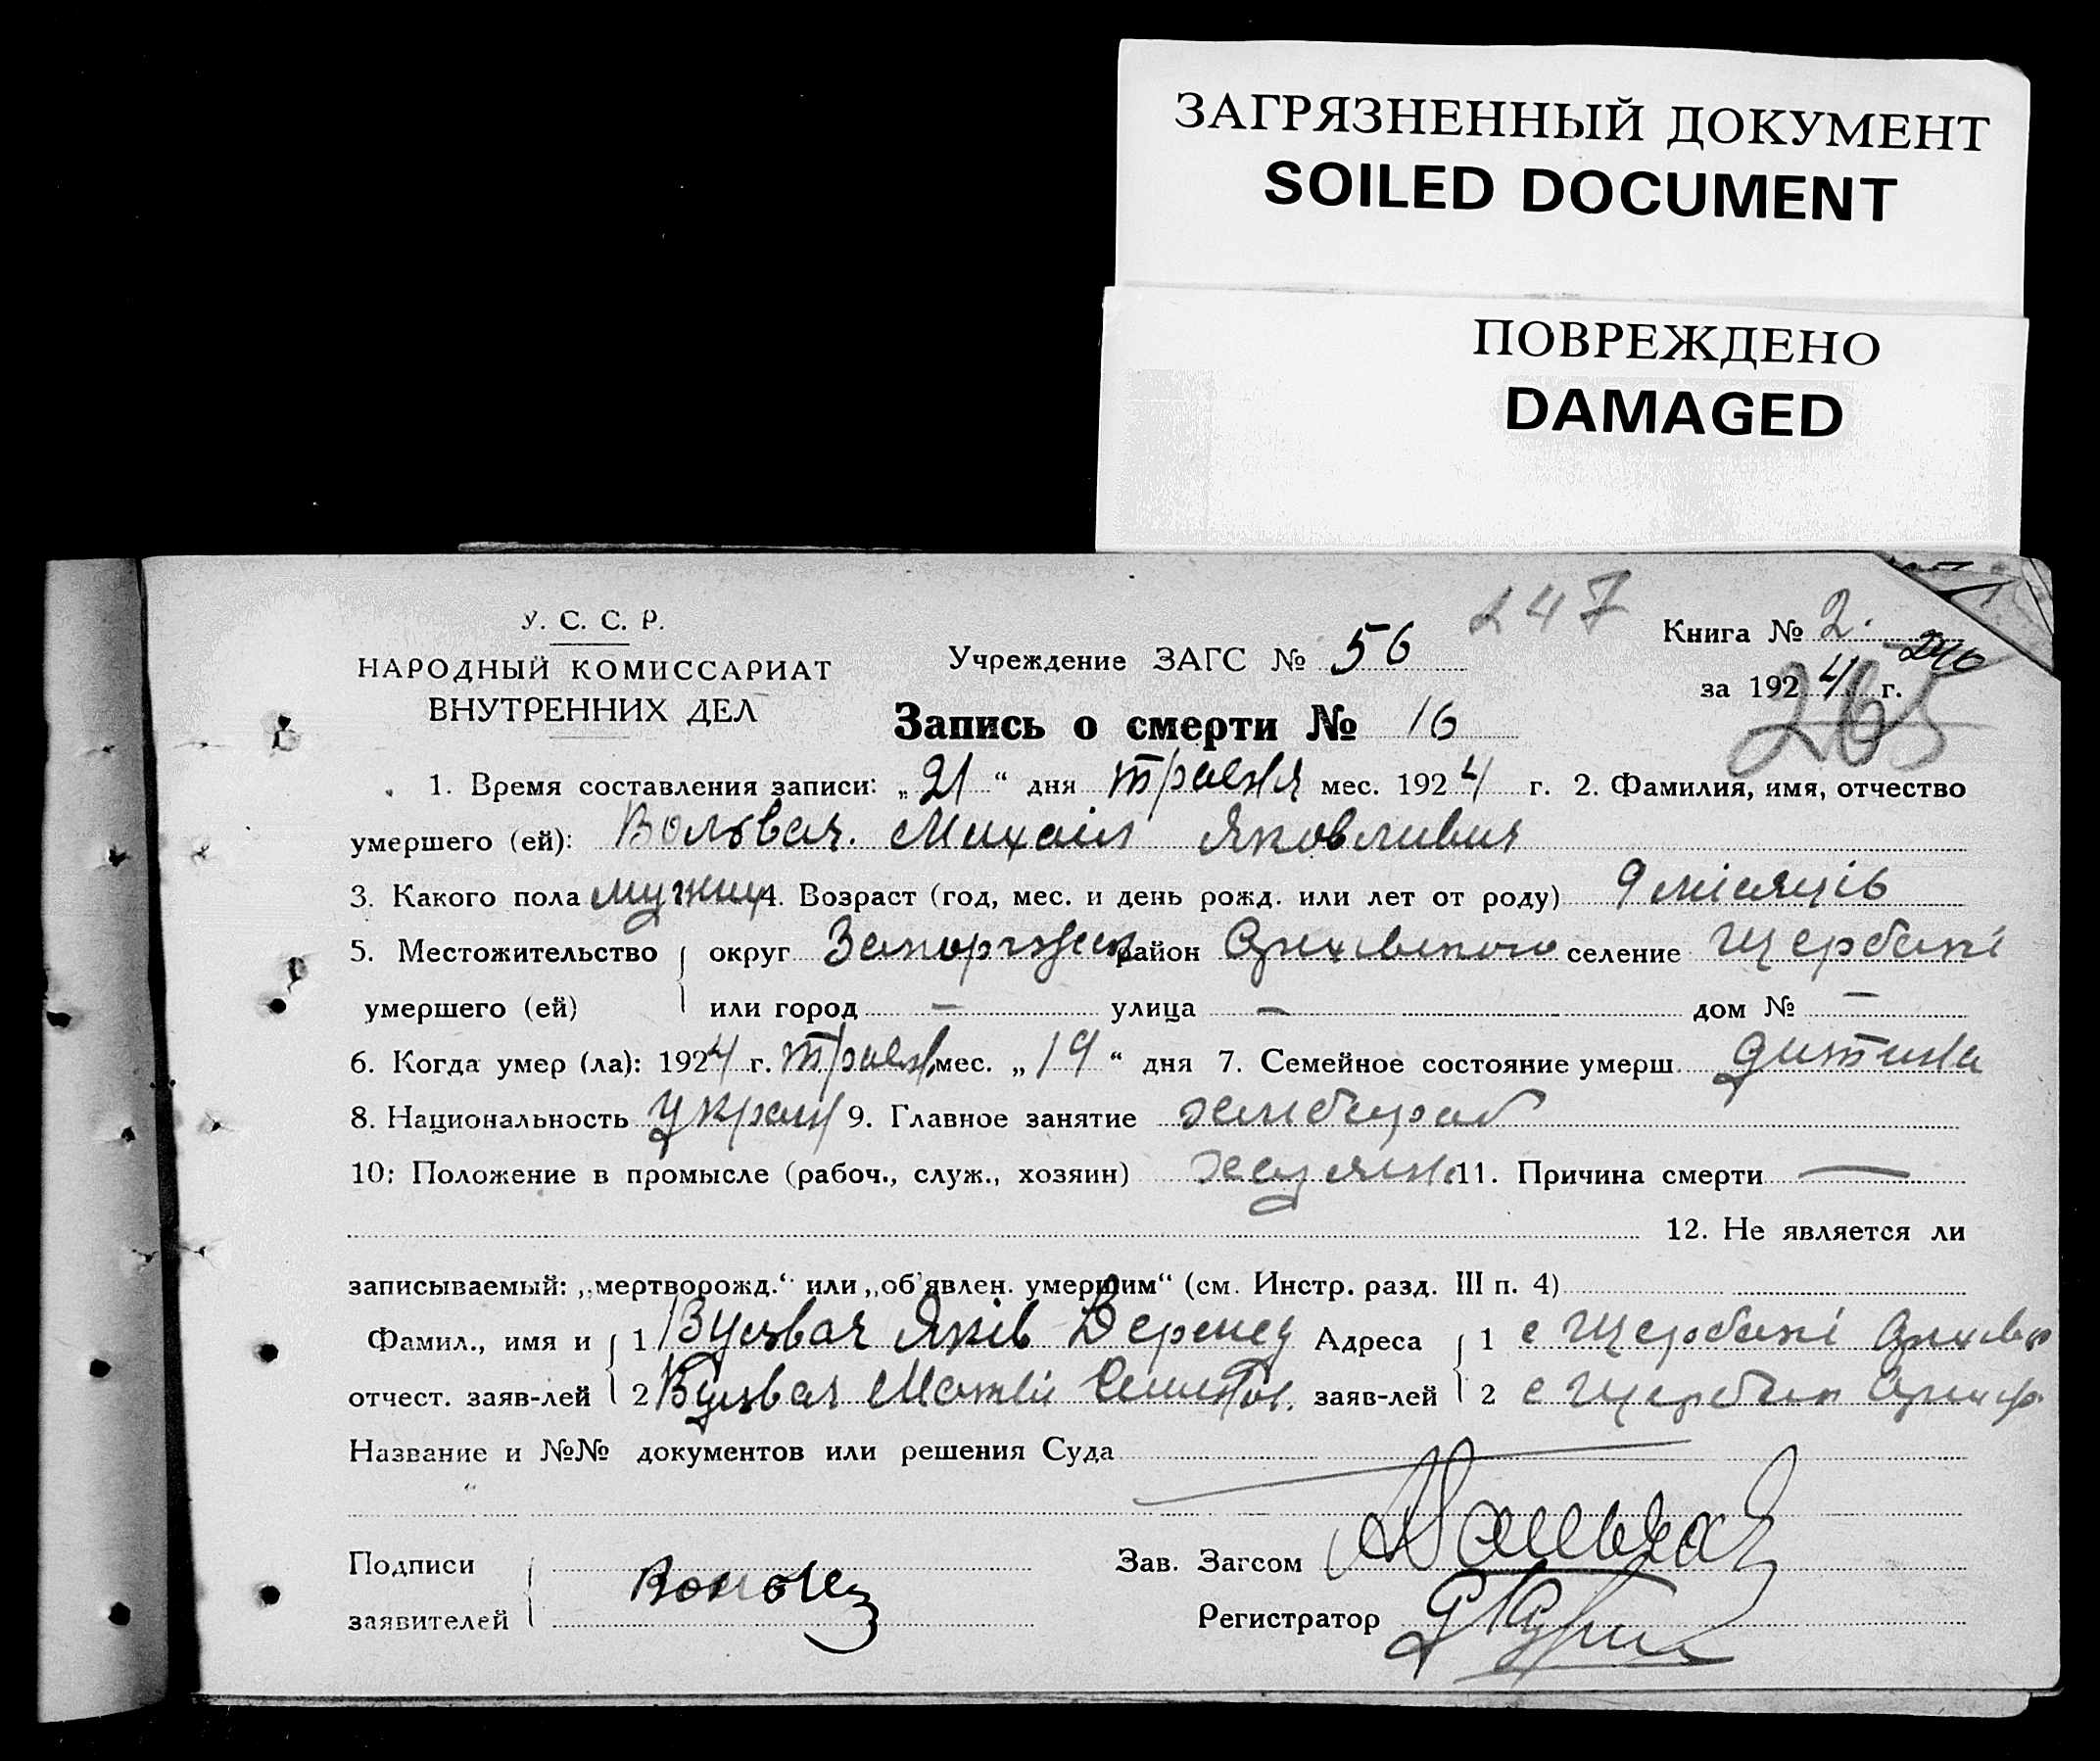 ЗАГРЯЗНЕННЫЙ ДОКУМЕНТ
SOILED DOCUMENT
ПОВРЕЖДЕНО
DAMAGED
У. С. С. Р.
НАРОДНЫЙ КОМИССАРИАТ
ВНУТРЕННИХ ДЕЛ
Учреждение ЗАГС № 56
247
Книга № 2.
240
за 1924 г.
265
Запись о смерти № 16
1. Время составления записи: „21“ дня травня мес. 1924 г. 2. Фамилия, имя, отчество
умершего (ей): Вольвач. Михаіл Яковливич
3. Какого пола мужич 4. Возраст (год, мес. и день рожд. или лет от роду) 9 місяців
5. Местожительство округ район селение Щербакі
умершего (ей) или город — улица — дом № —
6. Когда умер (ла): 1924 г. травн мес. „19“ дня 7. Семейное состояние умерш. дитина
8. Национальность україн 9. Главное занятие хлібороб
10: Положение в промысле (рабоч., служ., хозяин) 11. Причина смерти —
12. Не является ли
записываемый: „мертворожд.“ или „об’явлен. умершим“ (см. Инстр. разд. III п. 4)
Фамил., имя и 1 Яків Адреса 1 с Щербакі
отчест. заяв-лей 2 заяв-лей 2 с
Название и №№ документов или решения Суда
Подписи Зав. Загсом
заявителей Регистратор